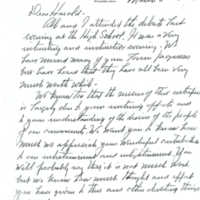 Dear Harold:
All and I attended the debate that
evening at the High School. It was a very
interesting and instructive evening. We
have missed many of your Forum programs
but have heard that they have all been very
much worth while.
We know too that the success of this enterprise
is largely due to your untiring efforts and to
your understanding of the desires of the people
of our community. We want you to know how
much we appreciate your wonderful contribution
to our entertainment and enlightenment. You
will probably say that it is not much work
but we know how much thought and effort
you have given to this and other similar things